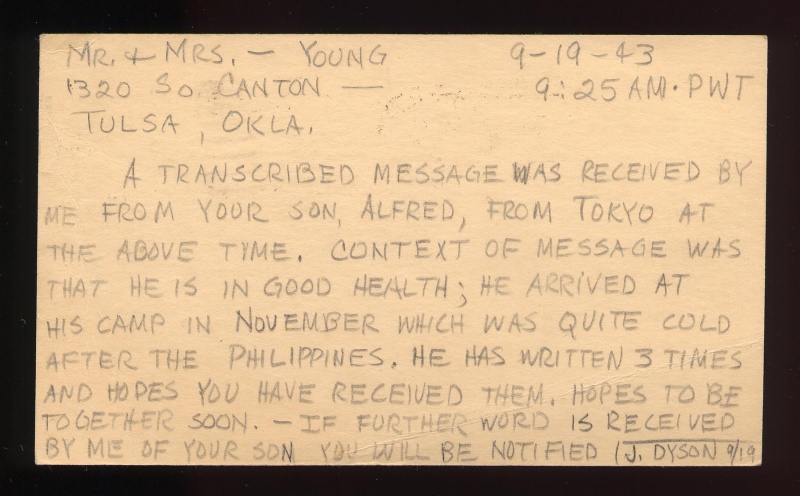 MR. + MRS. — YOUNG 9-19-43
1320 SO. CANTON — 9:25 AM. PWT
TULSA, OKLA.
A TRANSCRIBED MESSAGE WAS RECEIVED BY
ME FROM YOUR SON, ALFRED, FROM TOKYO AT
THE ABOVE TYME. CONTEXT OF MESSAGE WAS
THAT HE IS IN GOOD HEALTH; HE ARRIVED AT
HIS CAMP IN NOVEMBER WHICH WAS QUITE COLD
AFTER THE PHILIPPINES. HE HAS WRITTEN 3 TIMES
AND HOPES YOU HAVE RECEIVED THEM. HOPES TO BE
TOGETHER SOON. — IF FURTHER WORD IS RECEIVED
BY ME OF YOUR SON YOU WILL BE NOTIFIED (J. DYSON 9/19